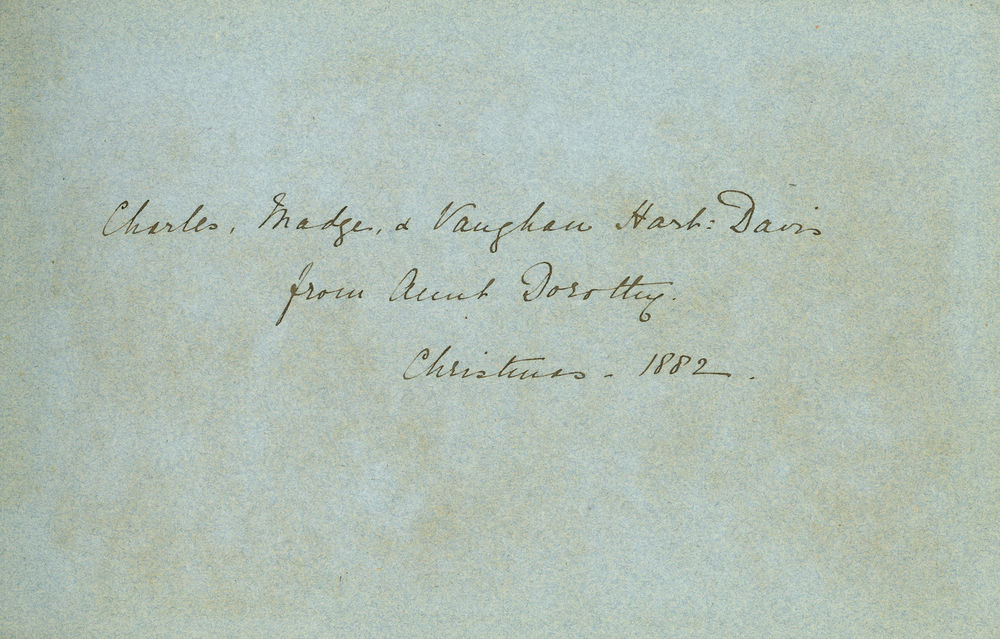 Charles, Madge, & Vaughan Hart: Davis
from Aunt Dorothy.
Christmas - 1882.